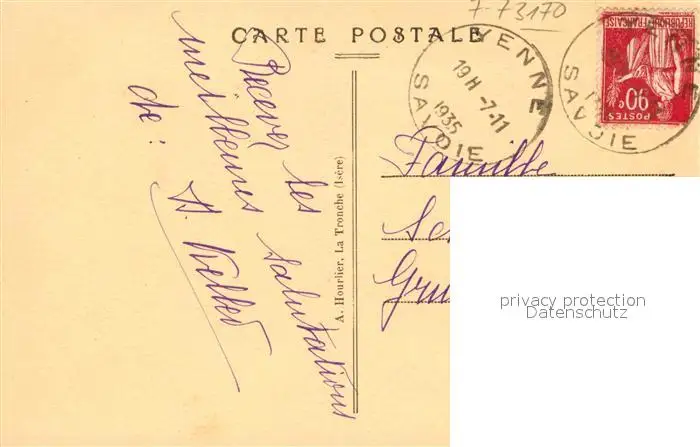 7-73170
CARTE POSTALE
YENNE
19H -7-11
1935
SAVOIE
REPUBLIQUE FRANÇAISE
90c
POSTES
SAVOIE
Recevez les salutations
meilleures
de :
A. Hourlier, La Tronche (Isère)
Famille
privacy protection
Datenschutz